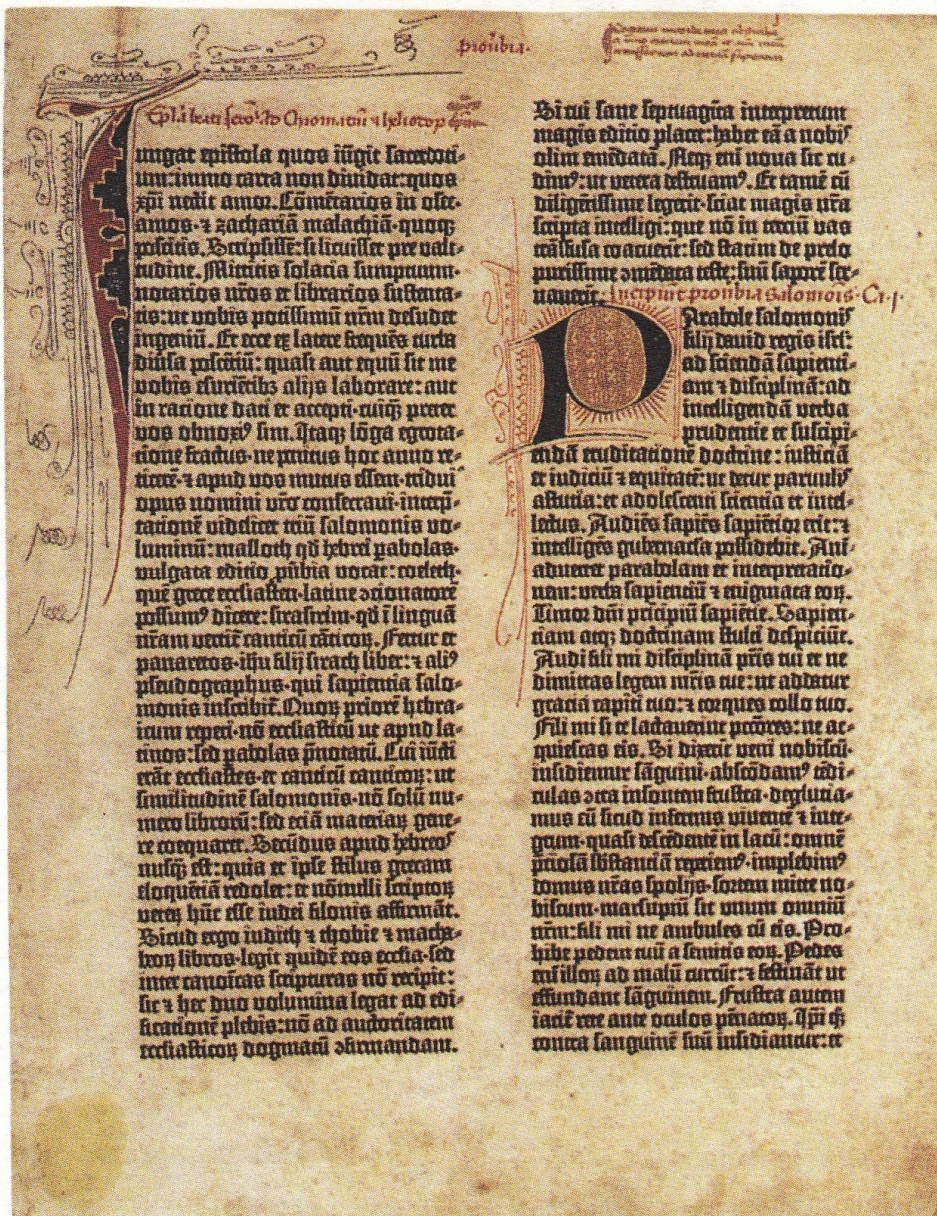 prouerbia
Epl'a beati Iero. ad Chromatiu et heliodor ep̄os
Iungat epistola quos iūgit sacerdoti-
um: immo carta non diuidat: quos
xp̄i nectit amor. Cōmētarios in osee.
amos. ⁊ zachariā malachiā. quoqꝫ
poscitis. Scripsissē: si licuisset pre vali-
tudine. Mittitis solacia sumptuum.
notarios nr̄os et librarios sustenta-
tis: ut vobis potissimū nr̄m desudet
ingeniū. Et ecce ex latere frequēs turba
diūsa poscētiū: quasi aut equū sit me
vobis esuriētibꝫ alijs laborare: aut
in racione dati et accepti. cuiqꝫ preter
vos obnoxiꝰ sim. Itaqꝫ lōga egrota-
tione fractus. ne penitus hoc anno re-
ticerē. ⁊ apud vos mutus essem. tridui
opus nomini vr̄o consecraui. interp̄-
tationē videlicet triū salomonis vo-
luminū: masloth qd̄ hebrei pabolas.
vulgata editio pūbia vocat: coeleth.
quē grece ecclesiasten. latine ↄcionatorē
possumꝰ dicere: sirasirim. qd̄ ī linguā
nr̄am vertit̄ canticū cāticoꝝ. Fertur et
panaretos. ih̄u filij sirach liber: ⁊ aliꝰ
pseudographus. qui sapientia salo-
monis inscribit̄. Quoꝝ priorē hebra-
icum repperi. nō ecclesiasticū ut apud la-
tinos: sed pabolas p̄notatū. Cui iūcti
erāt ecclesiastes. et canticū canticoꝝ: ut
similitudinē salomonis. nō solū nu-
mero librorū: sed eciā materiaꝝ gene-
re coequaret. Secūdus apud hebreos
nusqꝫ est: quia et ipse stilus grecam
eloquētiā redolet: et nōnulli scriptoꝝ
veteꝝ hūc esse iudei filonis affirmāt.
Sicud ergo iudith ⁊ thobie ⁊ macha-
beoꝝ libros. legit quidē eos ecclesia. sed
inter canoīcas scripturas nō recipit:
sic ⁊ hec duo volumina legat ad edi-
ficationē plebis: nō ad auctoritatem
ecclesiasticoꝝ dogmatū ↄfirmandam.
Si cui sane septuagīta interpretum
magis editio placet: habet eā a nobis
olim emēdatā. Neqꝫ enī noua sic cu-
dimꝰ: ut vetera destruamꝰ. Et tamē cū
diligētissime legerit. sciat magis nr̄a
scripta intelligi: que nō in terciū vas
trāsfusa coacuerit: sed statim de prelo
purissime ↄmēdata teste: suū saporē ser-
uauerit. Incipiūt prouerbia Salomōis. Ca. j.
Parabole salomonis
filij dauid regis isrl':
ad sciendā sapienti-
am ⁊ disciplinā: ad
intelligendā verba
prudentie et suscipi-
endā eruditationē doctrine: iusticiā
et iudiciū ⁊ equitatē: ut detur paruulis
astutia: et adolescenti scientia et intel-
lectus. Audiēs sapiēs sapiētior erit: ⁊
intelligēs gubernacla possidebit. Ani-
aduertet parabolam et interpretatio-
nem: verba sapientiū ⁊ enigmata eoꝝ.
Timor dn̄i principiū sapiētie. Sapien-
tiam atqꝫ doctrinam stulti despiciūt.
Audi fili mi disciplinā pr̄is tui et ne
dimittas legem mr̄is tue: ut addatur
gracia capiti tuo: ⁊ torques collo tuo.
Fili mi si te lactauerint pccōres: ne ac-
quiescas eis. Si dixerīt veni nobiscū.
insidiemur sāguini. abscōdamꝰ tēdi-
culas ↄtra insontem frustra. deglucia-
mus eū sicud infernus viuentē ⁊ inte-
grum. quasi descēdentē in lacū: omnē
p̄ciosā substanciā repperiemꝰ. implebimꝰ
domus nr̄as spolijs. sortem mitte no-
biscum. marsupiū sit vnum omniū
nr̄m: fili mi ne ambules cū eis. Pro-
hibe pedem tuū a semitis eoꝝ. Pedes
enī illoꝝ ad malū currūt: ⁊ festināt ut
effundant sāguinem. Frustra autem
iacit̄ rete ante oculos pēnatoꝝ. Ipi qꝫ
contra sanguinē suū insidiantur: et